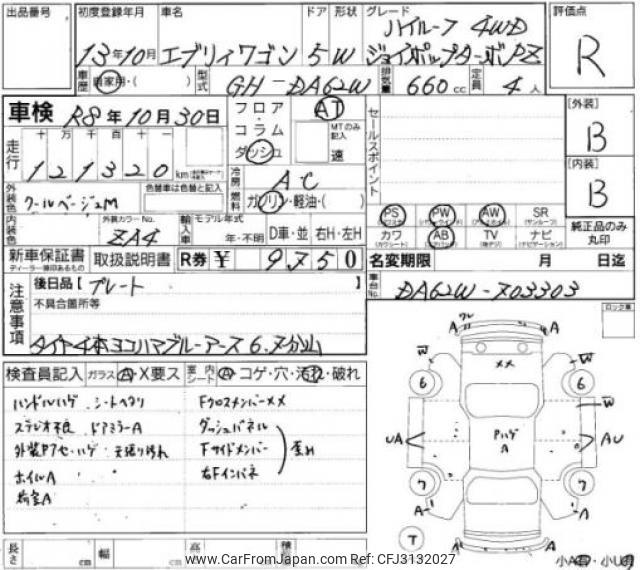 出品番号
初度登録年月
車名
ドア 形状
グレード
評価点
13年10月
エブリィワゴン
5 W
ハイルーフ 4WD
ジョイポップターボPZ
R
車歴
自家用・( )
型式
GH-DA62W
排気量
660 cc
定員
4 人
車検
R8年10月30日
フロア・コラム
ダッシュ
AT
MTのみ記入
速
セールスポイント
[外装]
B
[内装]
B
走行
十 万 千 百 十
121320 km
冷房
A・C
燃料
ガソリン・軽油・( )
外装色
クールベージュM
色替車は色替と記入
内装色
外装カラーNo.
ZA4
輸入車
モデル年式
年・不明
D車・並
右H・左H
PS
PW
AW
SR
(サンルーフ)
カワ
(カワシート)
AB
TV
ナビ
(ナビゲーション)
純正品のみ丸印
新車保証書
ディーラー捺印あるもの
取扱説明書
R券
¥
9750
名変期限
月
日迄
注意事項
後日品【プレート 】
不具合箇所等
タイヤ4本ヨコハマブルーアース
車台No.
DA62W-703303
ロック車
検査員記入
ガラス
A・X要ス
室内シート
A・コゲ・穴・汚れ・破れ
ハンドルハゲ シートヘタリ
ステレオ不良 ドアミラーA
ホイルA
荷室A
FクロスメンバーXX
ダッシュパネル
Fサイドメンバー
右Fインパネ
歪み
A
A
W
W
W
XX
6
6
UA
Pハゲ
A
AU
7
7
A
A
T
A
A
長さ
cm
幅
cm
高
積
www.CarFromJapan.com Ref: CFJ3132027